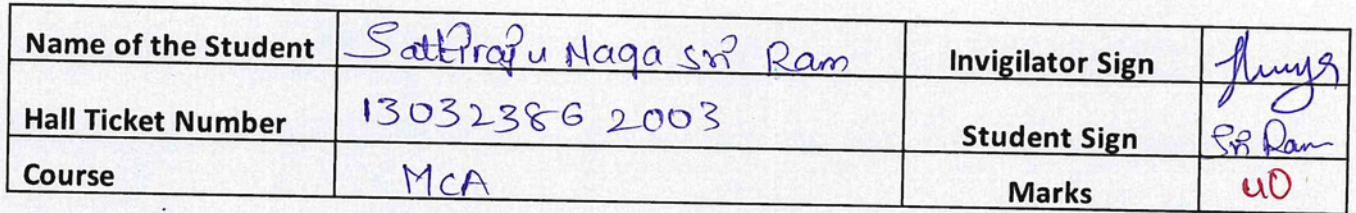 Name of the Student Sattiraju Naga Sri Ram Invigilator Sign
Hall Ticket Number 130323862003 Student Sign Sri Ram
Course MCA Marks 40